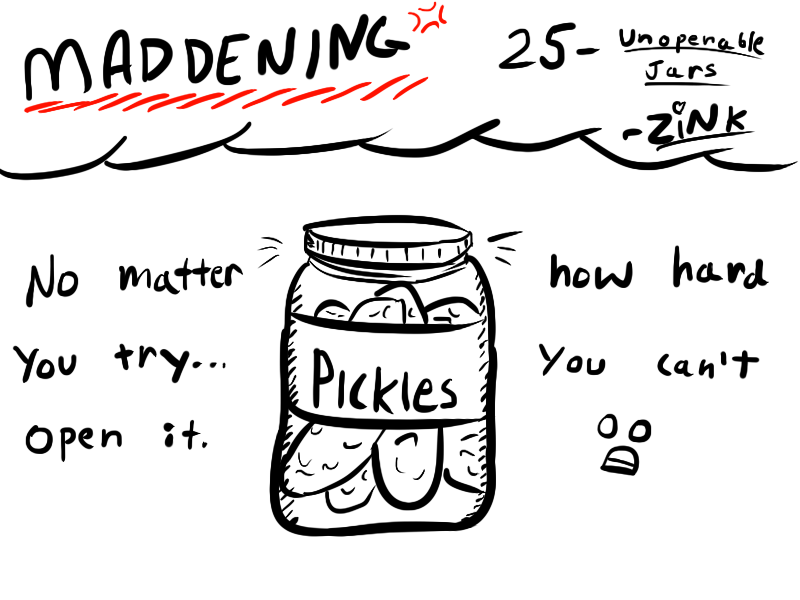 MADDENING
25- Unoperable
Jars
-ZiNK
No matter how hard
You try... You can't
open it.
Pickles